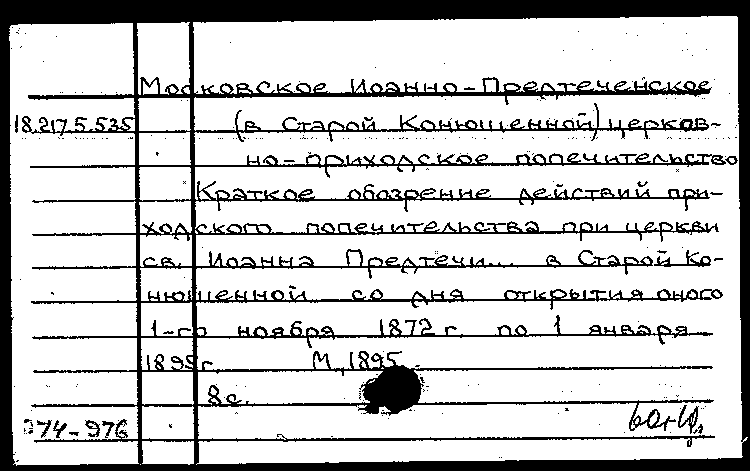 Московское Иоанно-Предтеченское
18.217.5.535 (в Старой Конюшенной) церков-
но-приходское попечительство
Краткое обозрение действий при-
ходского попечительства при церкви
св. Иоанна Предтечи... в Старой Ко-
нюшенной со дня открытия оного
1-го ноября 1872 г. по 1 января
1895 г. М., 1895
8 с.
974-976